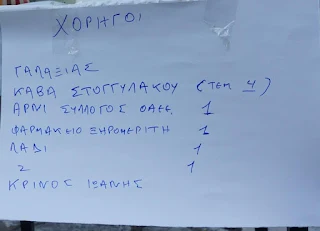 ΧΟΡΗΓΟΙ
ΓΑΛΑΞΙΑΣ
ΚΑΒΑ ΣΤΟΓΓΥΛΑΚΟΥ (ΤΕΜ 4)
ΑΡΝΙ ΣΥΛΛΟΓΟΣ ΟΑΕΕ 1
ΦΑΡΜΑΚΕΙΟ ΞΗΡΟΜΕΡΙΤΗ 1
ΛΑΔΙ 1
2 1
ΚΡΙΝΟΣ ΙΩΑΝΗΣ